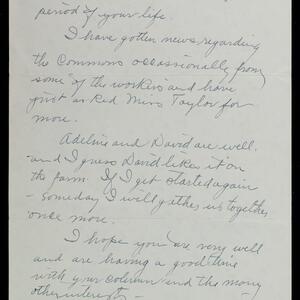 period of your life.
I have gotten news regarding
the Commons occassionally from
some of the workers and have
just asked Miss Taylor for
more.
Adeline and David are well.
and I guess David likes it on
the farm. If I get started again
- someday I will gather us together
once more.
I hope you are very well
and are having a good time
with your column and the many
other interests -